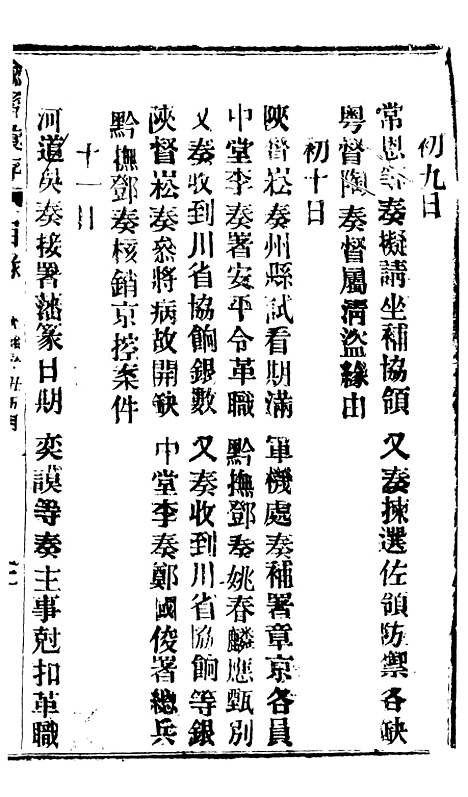 初九日
常恩等奏擬請坐補協領　又奏揀選佐領防禦各缺
粵督陶奏督屬清盜緣由
初十日
陝督崧奏州縣試看期滿　軍機處奏補署章京各員
中堂李奏署安平令革職　黔撫鄧奏姚春麟應甄別
又奏收到川省協餉銀數　又奏收到川省協餉等銀
陝督崧奏叅將病故開缺　中堂李奏鄭國俊署總兵
黔撫鄧奏核銷京控案件
十一日
河道吳奏接署藩篆日期　奕謨等奏主事尅扣革職
目錄